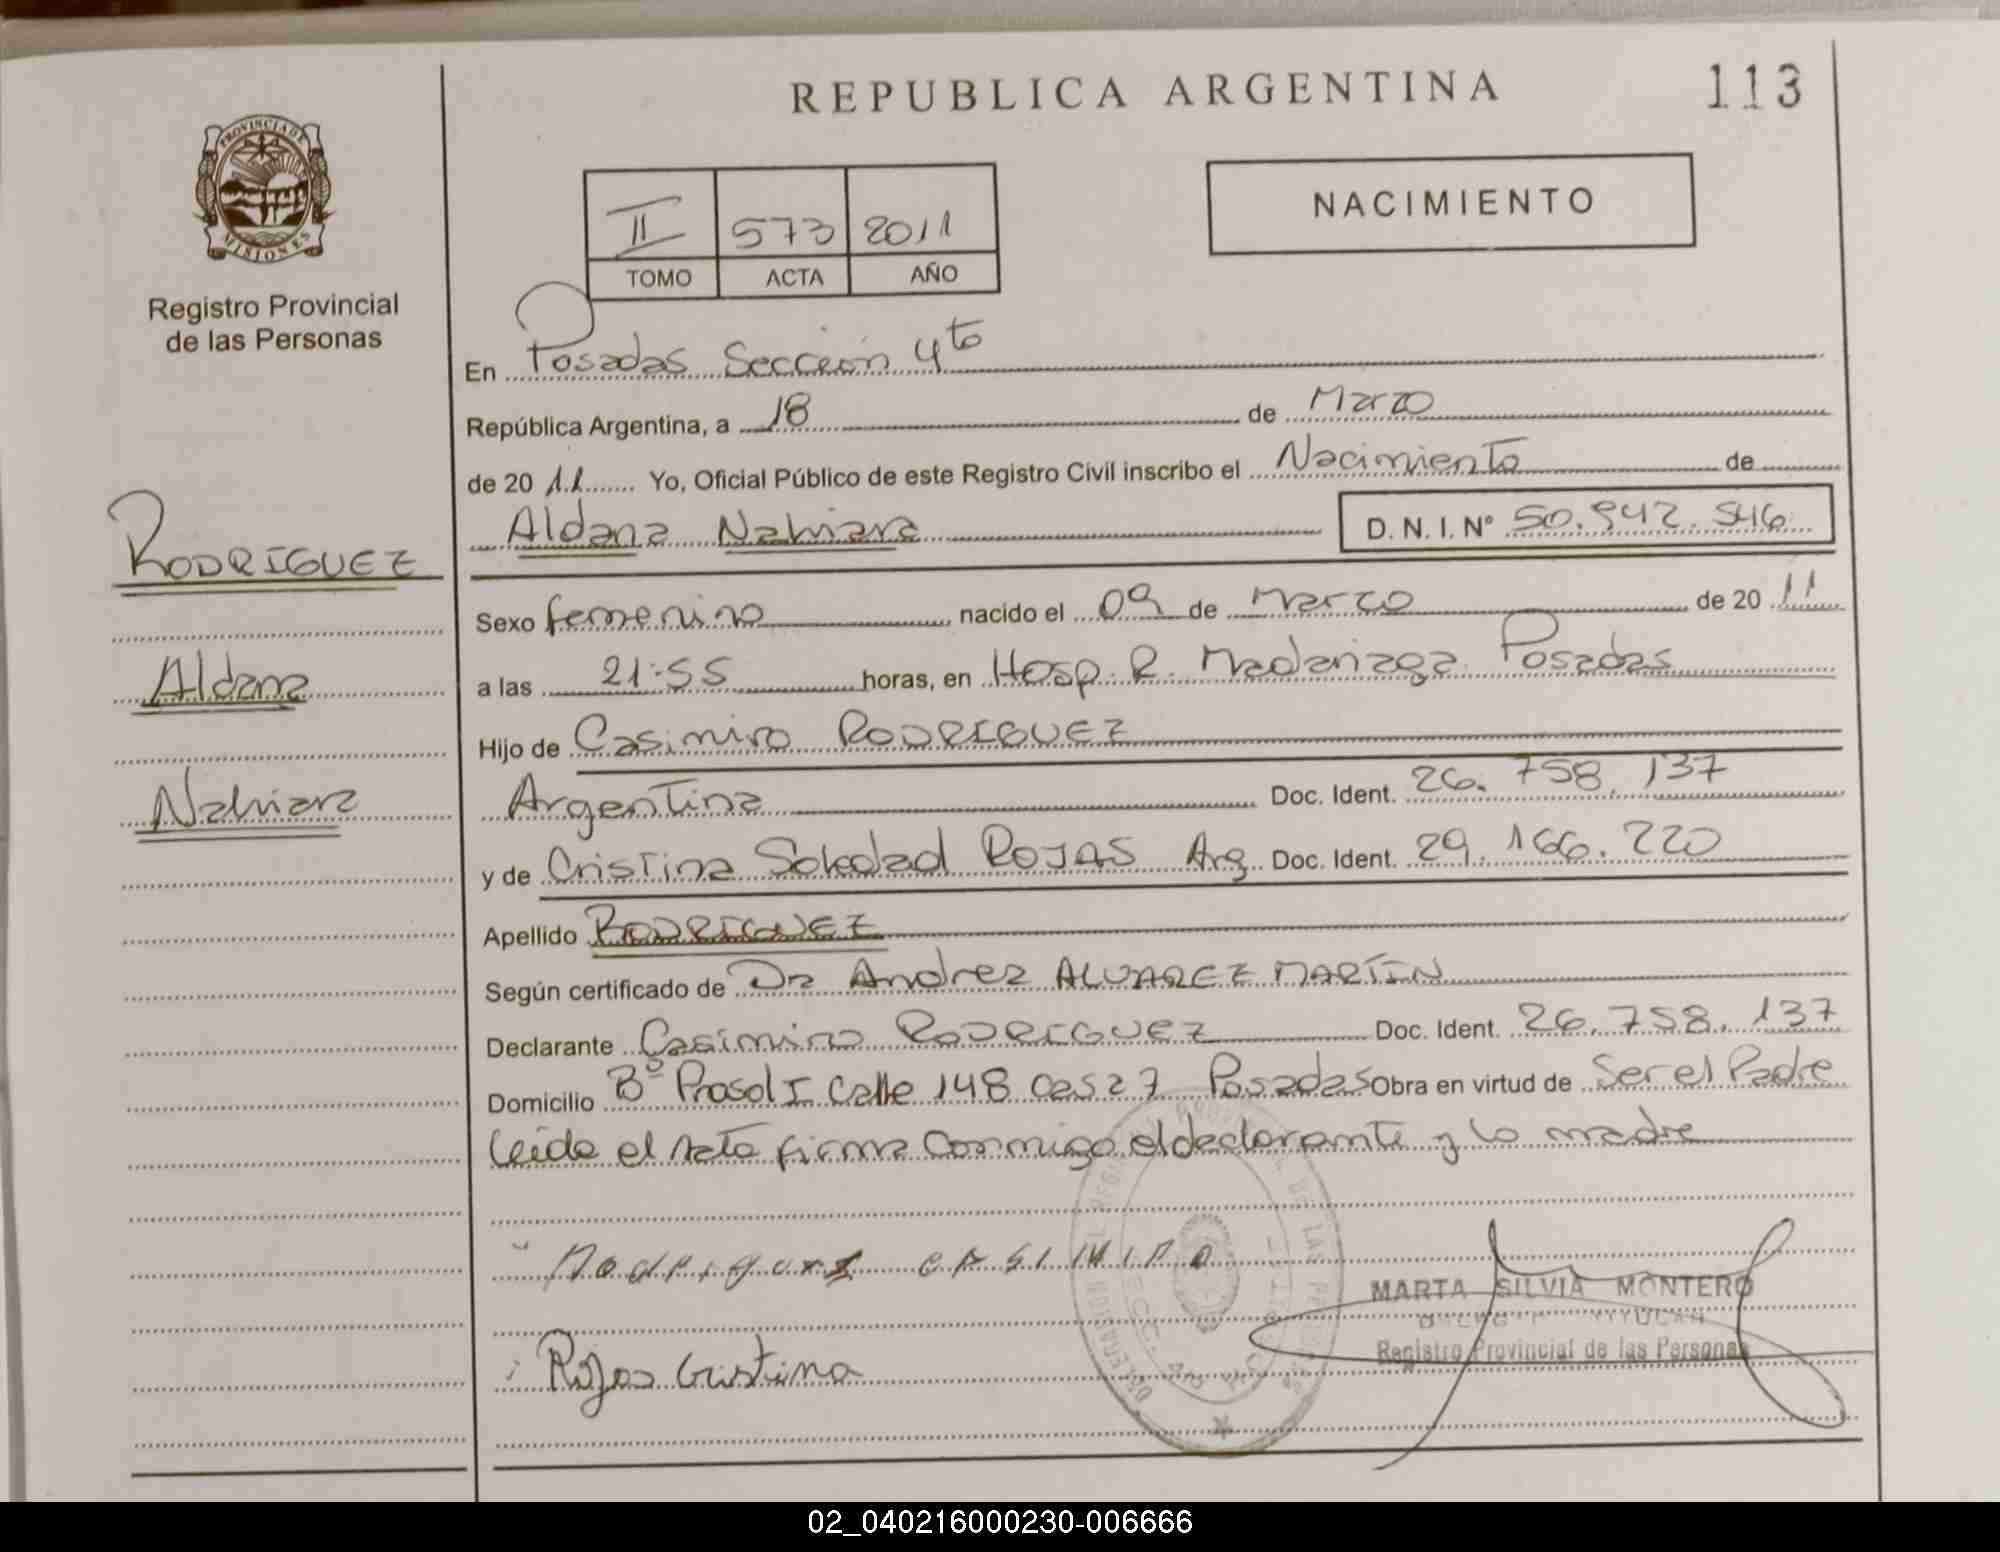 REPUBLICA ARGENTINA
113
PROVINCIA DE
MISIONES
Registro Provincial
de las Personas
II 573 2011
TOMO ACTA AÑO
NACIMIENTO
En Posadas Sección 4to
República Argentina, a 18 de Marzo
de 2011 Yo, Oficial Público de este Registro Civil inscribo el Nacimiento de
Aldana Nahiara D. N. I. N° 50.942.546
RODRIGUEZ
Aldana
Nahiara
Sexo femenino nacido el 09 de Marzo de 2011
a las 21:55 horas, en Hosp. R. Madariaga Posadas
Hijo de Casimiro RODRIGUEZ
Argentina Doc. Ident. 26.758.137
y de Cristina Soledad ROJAS Arg Doc. Ident. 29.166.220
Apellido RODRIGUEZ
Según certificado de Dr Andrez ALVAREZ MARTIN
Declarante Casimiro RODRIGUEZ Doc. Ident. 26.758.137
Domicilio B° Prosol I Calle 148 cas 27 Posadas Obra en virtud de Ser el Padre
leida el Acta firma Conmigo el declarante y la madre
Rodriguez CASIMIRO
Rojas Cristina
MARTA SILVIA MONTERO
Registro Provincial de las Personas
02_040216000230-006666